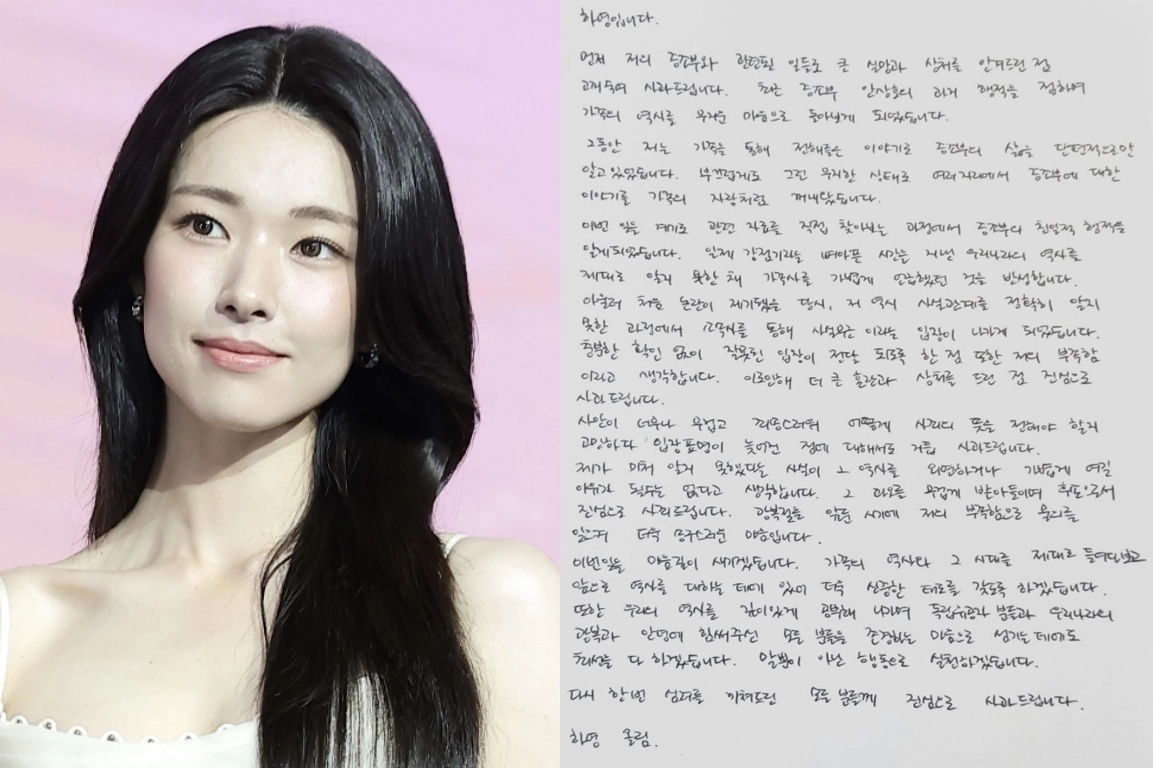 하영입니다.
먼저 저의 증조부와 관련된 일들로 큰 실망과 상처를 안겨드린 점
고개숙여 사과드립니다. 최근 증조부 안상호의 과거 행적을 접하며
가족의 역사를 무거운 마음으로 돌아보게 되었습니다.
그동안 저는 가족을 통해 전해들은 이야기로 증조부의 삶을 단편적으로만
알고 있었습니다. 부끄럽게도 그런 무지한 상태로 여러 자리에서 증조부에 대한
이야기를 가족의 자랑처럼 꺼내왔습니다.
이번 일을 계기로 관련 자료를 직접 찾아보는 과정에서 증조부의 친일적 행적을
알게되었습니다. 일제 강점기라는 뼈아픈 시간을 지낸 우리나라의 역사를
제대로 알지 못한 채 가족사를 가볍게 언급했던 것을 반성합니다.
아울러 처음 논란이 제기됐을 당시, 저 역시 사실관계를 정확히 알지
못한 과정에서 소속사를 통해 사실무근 이라는 입장이 나가게 되었습니다.
충분한 확인 없이 잘못된 입장이 전달 되도록 한 점 또한 저의 부족함
이라고 생각합니다. 이로인해 더 큰 혼란과 상처를 드린 점 진심으로
사과드립니다.
사안이 너무나 무겁고 조심스러워 어떻게 사죄의 뜻을 전해야 할지
고민하다 입장표명이 늦어진 점에 대해서도 거듭 사과드립니다.
제가 미처 알지 못했다는 사실이 그 역사를 외면하거나 가볍게 여길
이유가 될수는 없다고 생각합니다. 그 과오를 무겁게 받아들이며 후손으로서
진심으로 사죄드립니다. 광복절을 앞둔 시기에 저의 부족함으로 물의를
일으켜 더욱 송구스러운 마음입니다.
이번일을 마음깊이 새기겠습니다. 가족의 역사와 그 시대를 제대로 들여다보고
앞으로 역사를 대하는 데에 있어 더욱 신중한 태도를 갖도록 하겠습니다.
또한 우리의 역사를 깊이있게 공부해 나가며 독립유공자 분들과 우리나라의
광복과 안녕에 힘써주신 모든 분들을 존경하는 마음으로 섬기는데에도
최선을 다 하겠습니다. 말뿐이 아닌 행동으로 실천하겠습니다.
다시 한번 심려를 끼쳐드린 모든 분들께 진심으로 사과드립니다.
하영 올림.